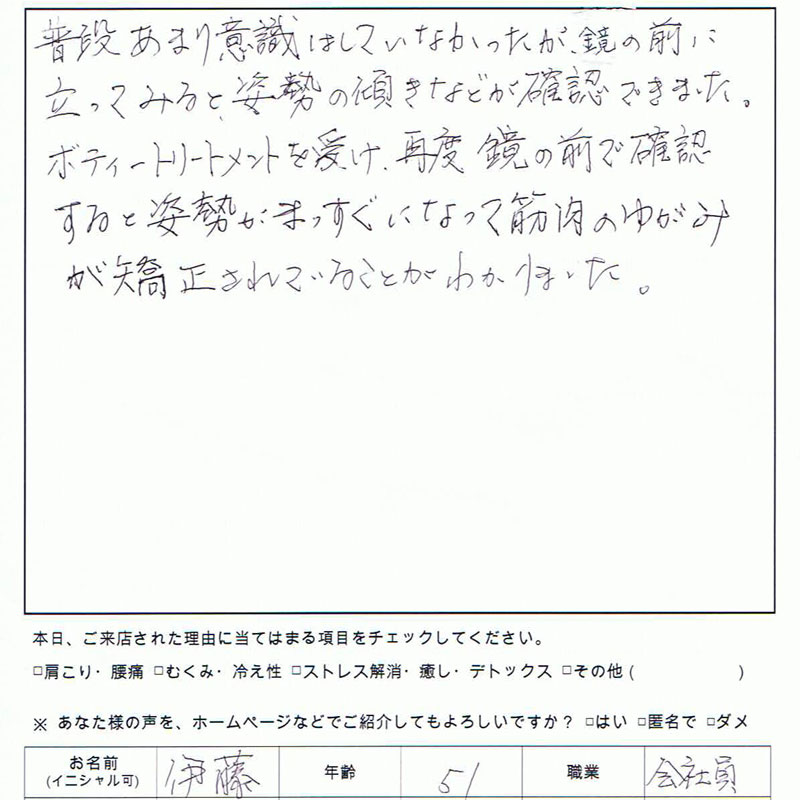 普段あまり意識はしていなかったが、鏡の前に
立ってみると、姿勢の傾きなどが確認できました。
ボディートリートメントを受け、再度鏡の前で確認
すると姿勢がまっすぐになって筋肉のゆがみ
が矯正されていることがわかりました。
本日、ご来店された理由に当てはまる項目をチェックしてください。
□肩こり・腰痛 □むくみ・冷え性 □ストレス解消・癒し・デトックス □その他 (　　　　　)
※ あなた様の声を、ホームページなどでご紹介してもよろしいですか？ □はい □匿名で □ダメ
お名前 伊藤 年齢 51 職業 会社員
(イニシャル可)